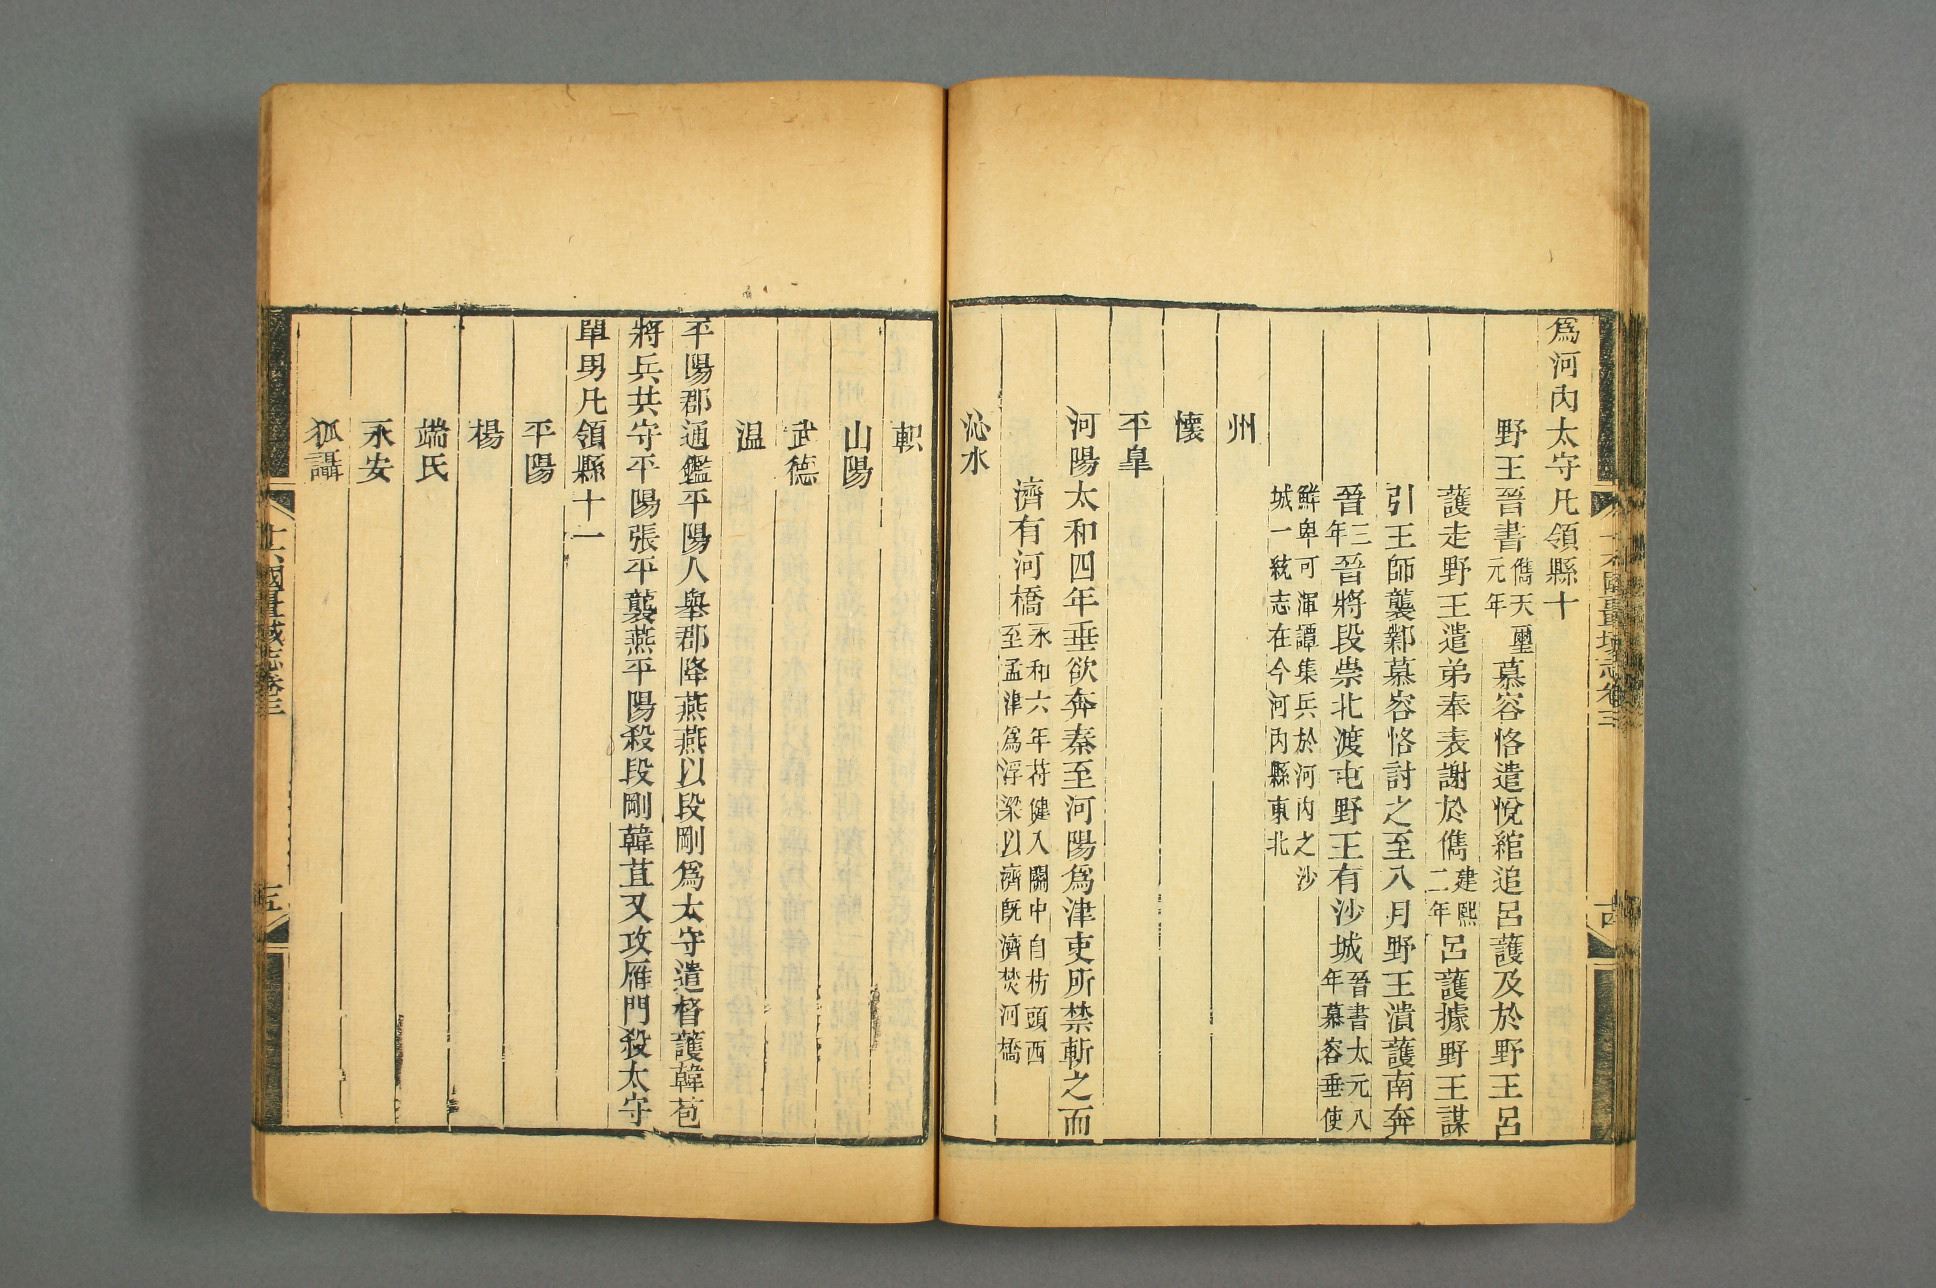 爲河內太守凡領縣十
野王晉書儁天璽元年慕容恪遣悅綰追呂護及於野王呂
護走野王遣弟奉表謝於儁建熙二年呂護據野王謀
引王師襲鄴慕容恪討之至八月野王潰護南奔
晉三年晉將段崇北渡屯野王有沙城晉書太元八年慕容垂使
鮮卑可渾譚集兵於河內之沙城一統志在今河內縣東北
州
懷
平臯
河陽太和四年垂欲奔秦至河陽爲津吏所禁斬之而
濟有河橋永和六年苻健入關中自枋頭西至孟津爲浮梁以濟旣濟焚河橋
沁水
軹
山陽
武德
温
平陽郡通鑑平陽人舉郡降燕燕以段剛爲太守遣督護韓苞
將兵共守平陽張平襲燕平陽殺段剛韓苴又攻雁門殺太守
單男凡領縣十一
平陽
楊
端氏
永安
狐讘
十六國疆域志卷三